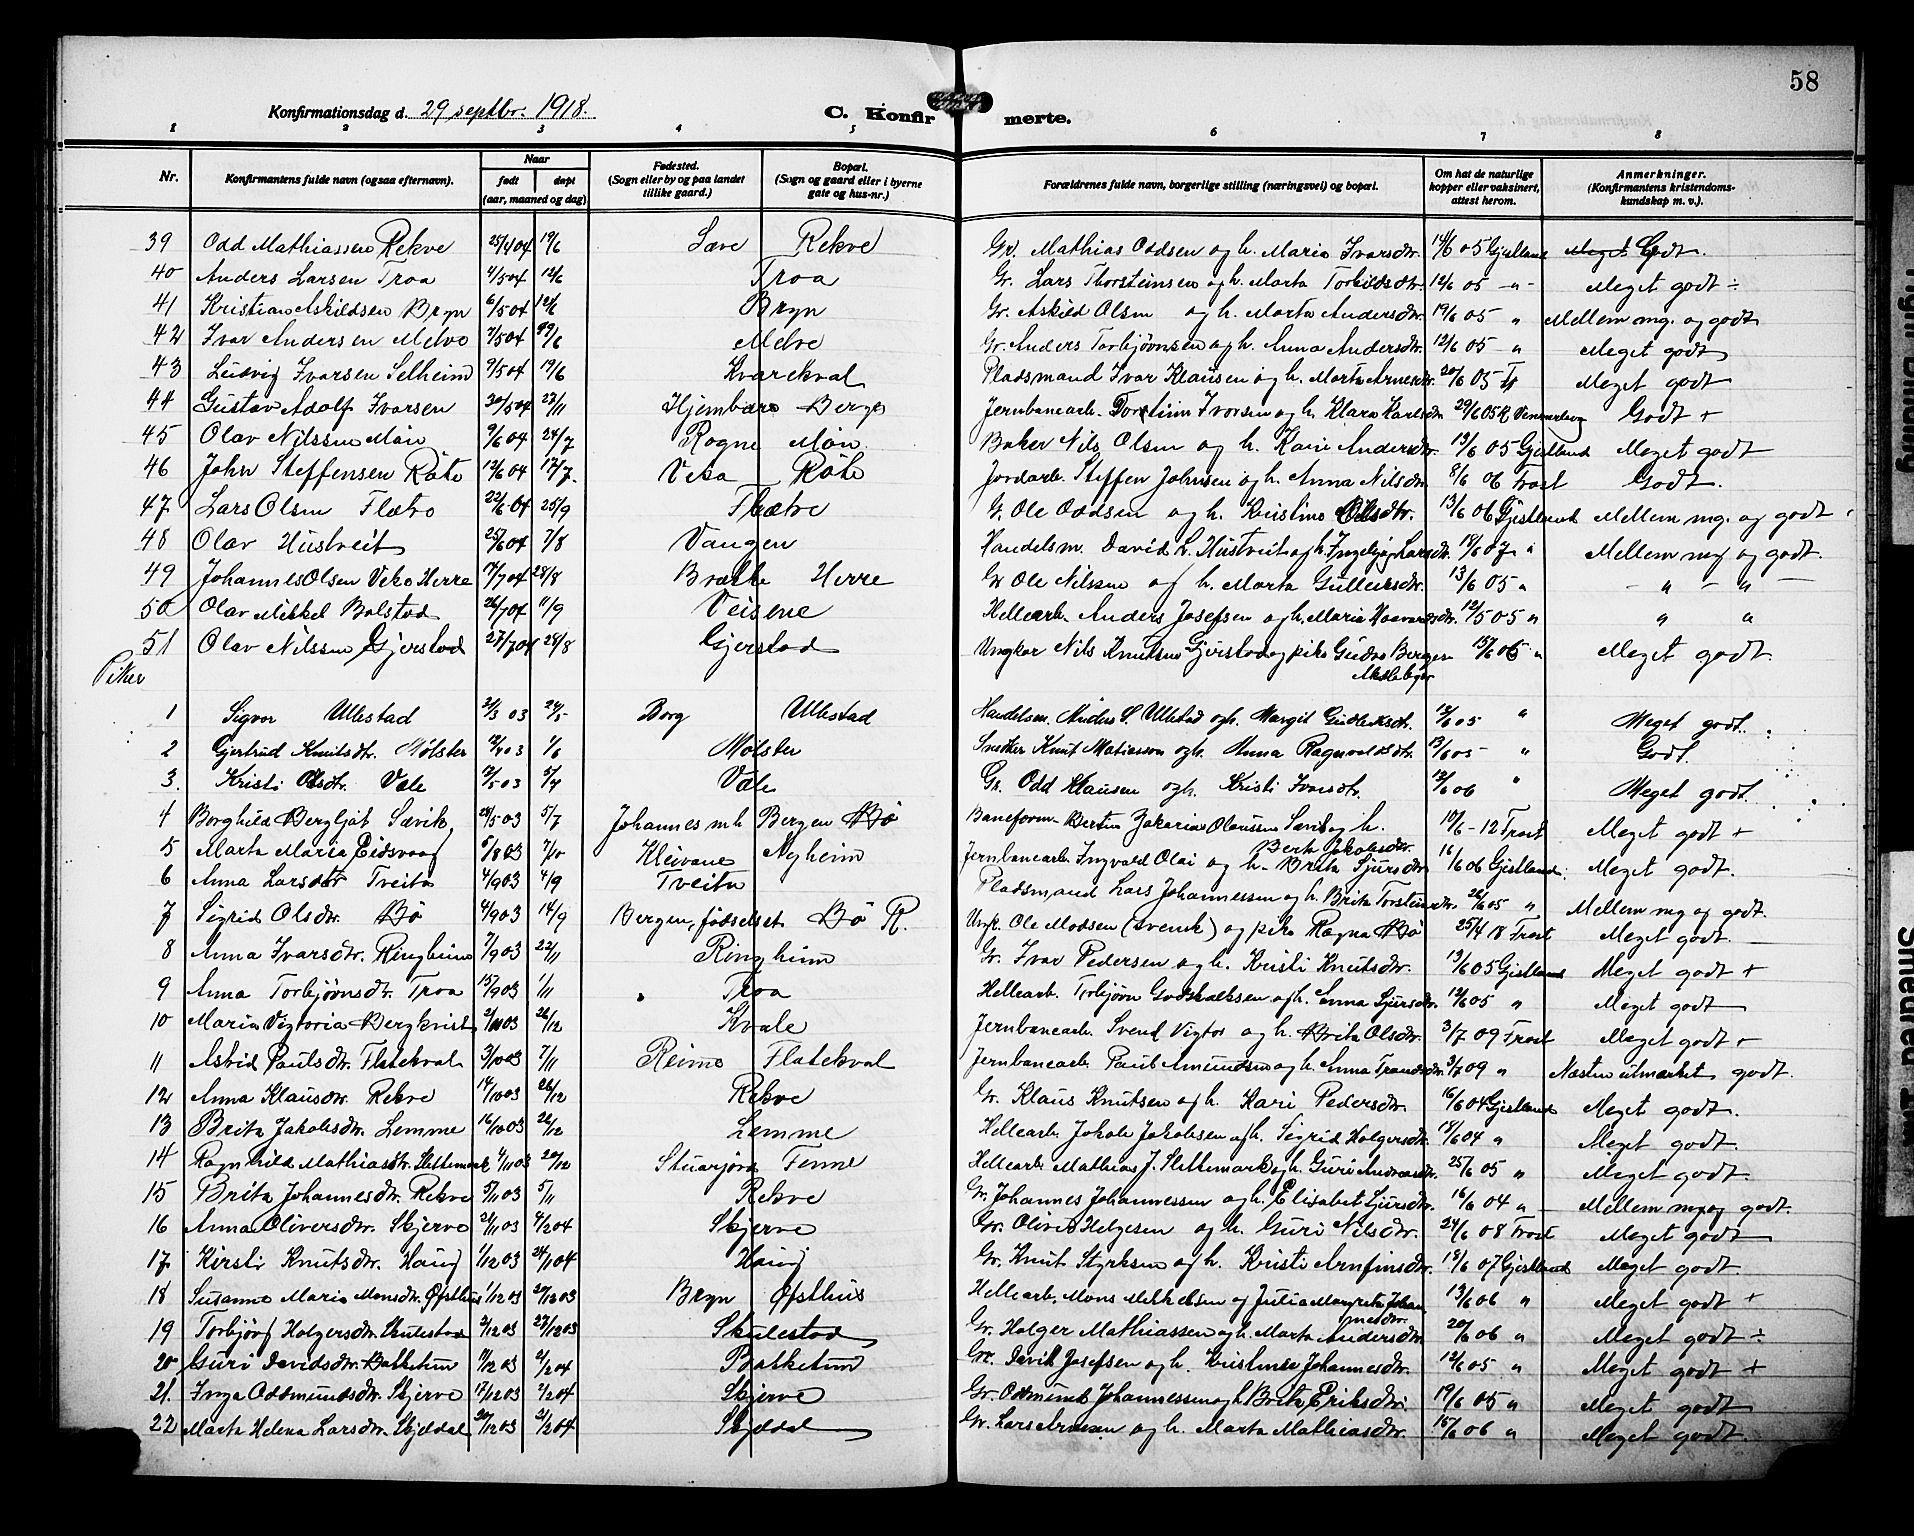 58
Konfirmationsdag d. 29 septbr. 1918.
C. Konfir merte.
1 2 3 4 5 6 7 8
Nr. Konfirmantens fulde navn (ogsaa efternavn). Naar født døpt (aar, maaned og dag) Fødested. (Sogn eller by og paa landet tillike gaard.) Bopæl. (Sogn og gaard eller i byerne gate og hus-nr.) Forældrenes fulde navn, borgerlige stilling (næringsvei) og bopæl. Om hat de naturlige kopper eller vaksinert, attest herom. Anmerkninger. (Konfirmantens kristendomskundskap m. v.).
39 Odd Mathiassen Rekve 25/4 04 19/6 Løve Rekve Gr. Mathias Oddsen og h. Maria Ivarsdtr. 14/6 05 Gjelland Meget Godt.
40 Anders Larsen Troa 4/5 04 12/6 Troa Gr. Lars Thorsteinsen og h. Marta Torkildsdtr. 12/6 05 -"- Meget godt ÷
41 Kristian Askildsen Bryn 6/5 04 12/6 Bryn Gr. Askild Olsen og h. Marta Andersdtr. 19/6 05 " Mellem mg. og godt
42 Ivar Andersen Melve 7/5 04 Melve Gr. Anders Torbjørnsen og h. Anna Andersdtr. 12/6 05 " Meget godt
43 Ludvig Ivarsen Selheim 9/5 04 19/6 Kvarekval Pladsmand Ivar Klausen og h. Marta Arnesdtr. 20/6 05 Meget godt
44 Gustav Adolf Ivarsen 30/5 04 27/11 Hjembare Berge Jernbanearb. Torstein Ivarsen og h. Klara Karlsdtr 29/6 05 Godt +
45 Olav Nilssen Møn 9/6 04 24/7 Rogne Møn Baker Nils Olsen og h. Kari Andersdtr. 13/6 05 Gjelland Meget godt
46 John Steffensen Røte 12/6 04 17/7 Veka Røte Jordarb. Steffen Johnsen og h. Anna Nilsdtr. 8/6 06 Trost Godt.
47 Lars Olsen Flatre 22/6 04 25/9 Flætre G. Ole Oddsen og h. Kristine Olsdtr. 13/6 06 Gjestland Mellem mg. og godt
48 Olav Hustveit 25/6 04 7/8 Vangen Handelsm. David L. Hustveit og h. Ingebjørg Larsdtr. 18/6 07 " Mellem mg og godt.
49 Johannes Olsen Veke Herre 7/7 04 28/8 Brække Herre Gr Ole Nilssen og h. Marta Gulleiksdtr. 13/6 05 " - " - " -
50 Olav Mikkel Bolstad 26/7 04 11/9 Veisene Hellearb. Anders Josefsen og h. Maria Haavardsdtr. 12/5 05 " " "
51 Olav Nilssen Gjerstad 27/7 04 28/8 Gjerstad Ungkar Nils Knutsen Gjerstad og pike Gudve Bergen 15/6 06 " Meget godt.
Piker
1 Sigvor Ullestad 21/3 03 24/5 Borg Ullestad Handelsm. Anders S. Ullestad og h. Margit Gudleiksdtr. 12/6 05 " Meget godt.
2 Gjertrud Knutsdtr. Mølster 12/4 03 1/6 Mølster Snedker Knut Matiassen og h. Anna Ragnvaldsdtr. 13/6 05 " Godt.
3. Kristi Olsdtr. Væle 12/5 03 5/7 Væle Gr. Odd Klausen og h. Kristi Ivarsdtr. 12/6 06 " Meget godt.
4 Borghild Bergljot Sævik 28/5 03 5/7 Johannes mh Bergen Bø Baneform. Bertin Zakarias Olaussen Sævik og h. Berta Jakobsdtr. 10/6-12 Trost Meget godt +
5 Marta Maria Eidsvaag 6/8 03 7/10 Kleivane Nyheim Jernbanearb. Ingvald Olai og h. Brita Sjursdtr. 16/6 06 Gjestland. Meget godt.
6 Anna Larsdtr Tveita 4/9 03 4/9 Tveita Pladsmand Lars Johannessen og h. Brita Torsteinsdtr. 26/6 05 " Mellem mg og godt.
7 Sigrid Olsdtr. Bø 4/9 03 14/9 Bergen, fødselsst Bø R. Ungk. Ole Modsen (svensk) og pike Ragna Bø 25/4 18 Trost Meget godt.
8 Anna Ivarsdtr. Ringheim 7/9 03 22/11 Ringheim Gr. Ivar Pedersen og h. Kristi Knutsdtr. 13/6 05 Gjestland Meget godt +
9 Anna Torbjørnsdtr. Troa 15/9 03 1/11 Troa Hellearb. Torbjørn Godskalksen og h. Anna Sjursdtr. 12/6 05 " Meget godt
10 Maria Vigtoria Bergkvist 26/12 Kvale Jernbanearb. Svend Vigtor og h. Brita Olsdtr. 3/7 09 Trost Meget godt
11 Astrid Paulsdtr. Flatekval 3/10 03 7/11 Reime Flatekval Jernbanearb. Paul Amundsen og h. Anna Trondsdtr. 3/7 09 " Næsten utmerket godt.
12 Anna Klausdtr. Rekve 14/10 03 26/12 Rekve Gr. Klaus Knutsen og h. Kari Pedersdtr. 16/6 04 Gjestland Meget godt.
13 Brita Jakobsdtr. Lemme 16/10 03 26/12 Lemme Hellearb. Jakob Jakobsen og h. Sigrid Holgersdtr. 18/6 04 " Meget godt.
14 Ragnhild Mathiasdtr. Slettemark 4/11 03 20/12 Tenne Hellearb. Mathias J. Slettemark og h. Guri Andreasdtr. 25/6 05 " Meget godt.
15 Brita Johannesdtr. Rekve 5/11 03 5/11 Rekve Gr. Johannes Johannessen og h. Elisabet Sjursdtr. 16/6 04 " Mellem mg og godt.
16 Anna Oliversdtr. Skjerve 21/11 03 4/2 04 Skjerve Gr. Oliver Helgesen og h. Guri Nilsdtr. 24/6 08 Trost Meget godt
17 Kirsti Knutsdtr. Haug 1/12 03 24/1 04 Haug Gr. Knut Styrksen og h. Kristi Arnfinsdtr. 18/6 07 Gjestland Meget godt.
18 Susanne Marie Monsdtr. Øfsthus 1/12 03 27/12 03 Bryn Øfsthus Hellearb. Mons Mikkelsen og Julia Margreta Johannesdtr. 13/6 06 " Meget godt +
19 Torbjørg Holgersdtr. Skulestad 2/12 03 27/12 03 Skulestad Gr. Holger Mathiassen og h. Marta Andersdtr. 20/6 06 " Meget godt ÷
20 Guri Davidsdtr. Batketun 11/12 03 2/2 04 Batketun Gr. David Josefsen og h. Kristense Johannesdtr. 12/6 05 " Meget godt +
21. Inga Oddmundsdtr. Skjerve 17/12 03 7/2 04 Skjerve Gr. Oddmund Johannessen og h Brita Eriksdtr. 19/6 05 " Meget godt
22 Marta Helena Larsdtr. Skjeldal 20/12 03 2/2 04 Skjeldal Gr. Lars Arnesen og h. Marta Mathiasdtr. 15/6 06 " Meget godt.